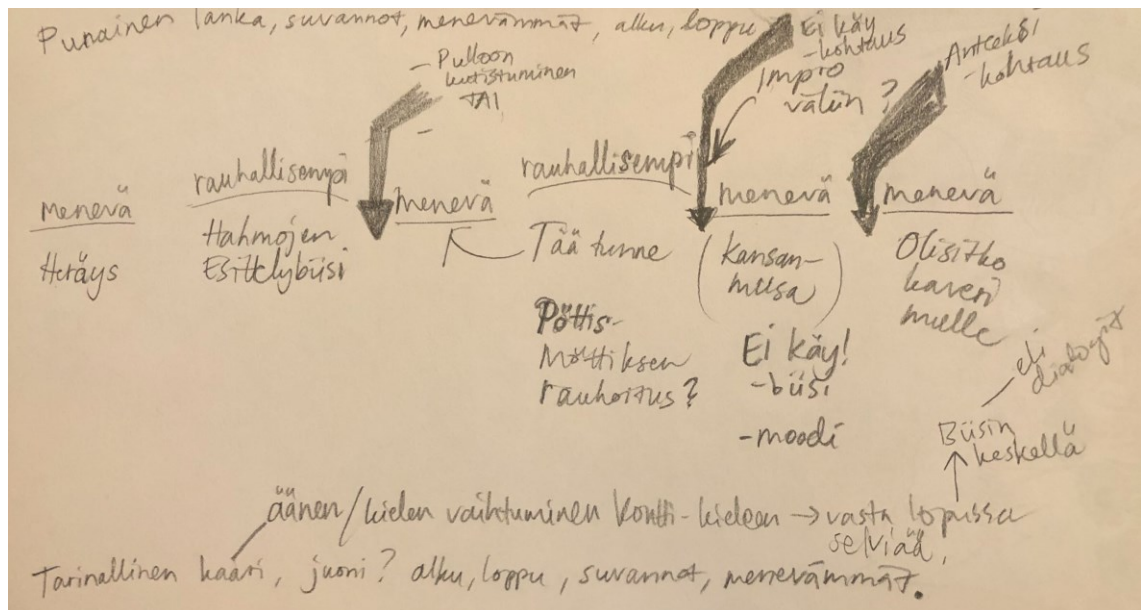 Punainen lanka, suvannot, menevämmät, alku, loppu
- Pulloon
kutistuminen
TAI
-
Ei käy
-kohtaus
Impro
väliin?
Anteeksi
-kohtaus
menevä
Heräys
rauhallisempi
Hahmojen
Esittelybiisi
menevä
rauhallisempi
Tää tunne
Pöttis-
Möttiksen
rauhoitus?
menevä
(Kansan-
musa)
Ei käy!
-biisi
-moodi
menevä
Olisitko
kaveri
mulle
eli
dialogit
Biisin
keskellä
äänen/kielen vaihtuminen Kontti-kieleen → vasta lopussa
selviää!
Tarinallinen kaari, juoni? alku, loppu, suvannot, menevämmät.